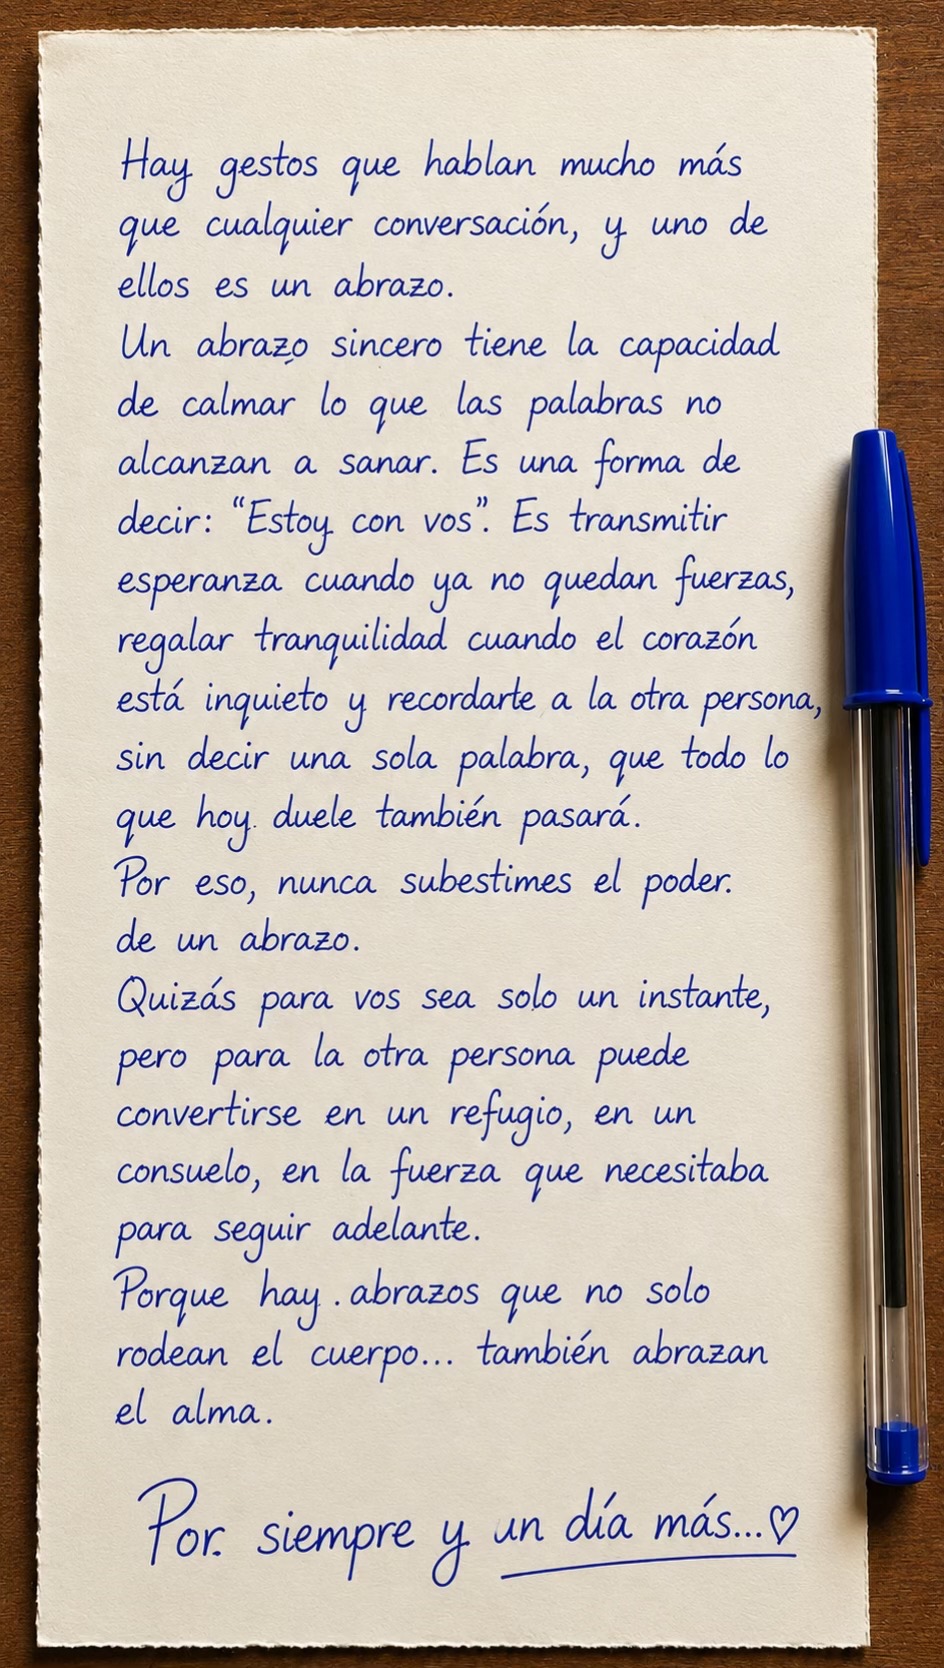 Hay gestos que hablan mucho más
que cualquier conversación, y uno de
ellos es un abrazo.
Un abrazo sincero tiene la capacidad
de calmar lo que las palabras no
alcanzan a sanar. Es una forma de
decir: “Estoy con vos”. Es transmitir
esperanza cuando ya no quedan fuerzas,
regalar tranquilidad cuando el corazón
está inquieto y recordarte a la otra persona,
sin decir una sola palabra, que todo lo
que hoy duele también pasará.
Por eso, nunca subestimes el poder.
de un abrazo.
Quizás para vos sea solo un instante,
pero para la otra persona puede
convertirse en un refugio, en un
consuelo, en la fuerza que necesitaba
para seguir adelante.
Porque hay. abrazos que no solo
rodean el cuerpo... también abrazan
el alma.
Por. siempre y un día más...♡